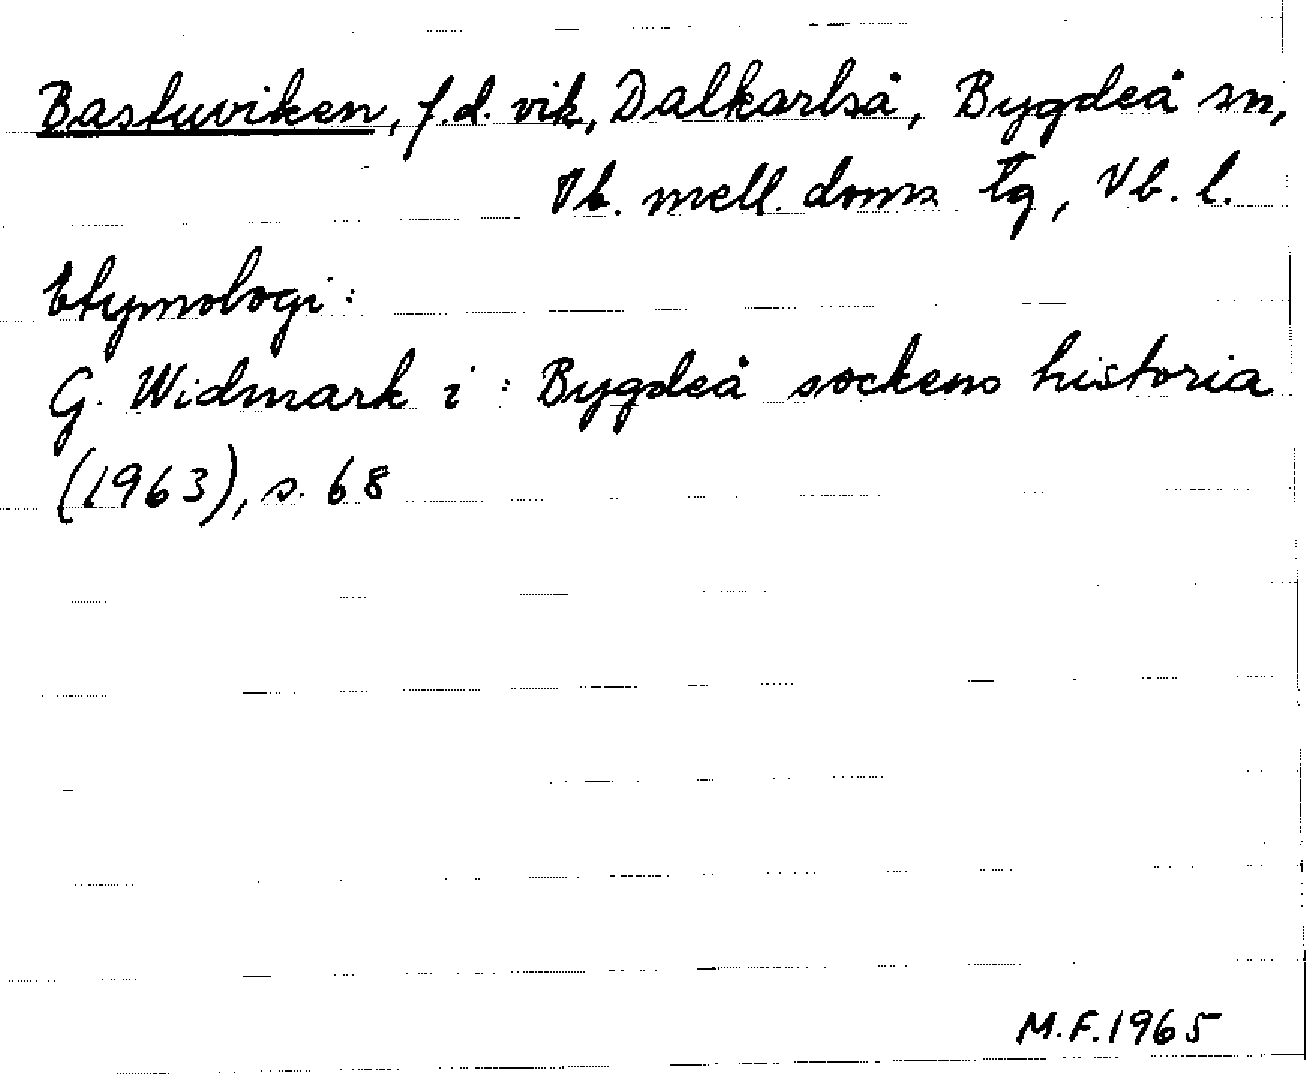 Bastuviken, f.d. vik, Dalkarlså, Bygdeå sn,
Vb. mell. doms tg, Vb. l.
Etymologi:
G. Widmark i: Bygdeå sockens historia
(1963), s. 68
M.F. 1965